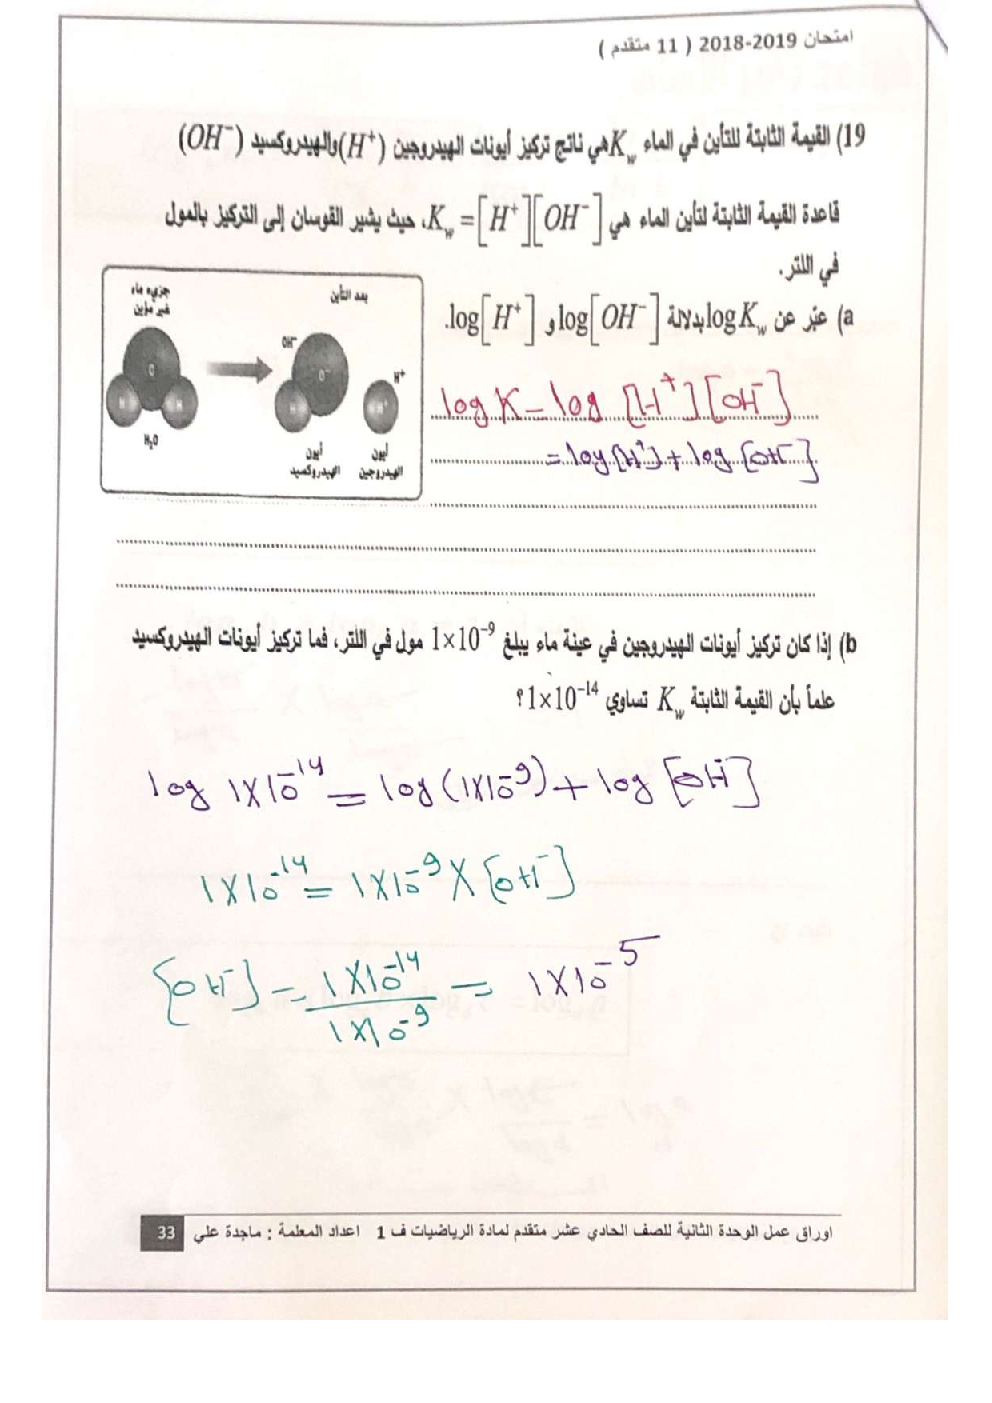 امتحان 2019-2018 ( 11 متقدم )
19) القيمة الثابتة للتأين في الماء K_w هي ناتج تركيز أيونات الهيدروجين (H⁺) والهيدروكسيد (OH⁻)
قاعدة القيمة الثابتة لتأين الماء هي K_w = [H⁺][OH⁻]، حيث يشير القوسان إلى التركيز بالمول
في اللتر.
a) عبّر عن log K_w بدلالة log[OH⁻] و log[H⁺].
جزيء ماء
غير مؤين
بعد التأين
O
H
H
H₂O
OH⁻
O⁻
H
H⁺
H
أيون
الهيدروكسيد
أيون
الهيدروجين
log K = log [H⁺][OH⁻]
= log [H⁺] + log [OH⁻]
b) إذا كان تركيز أيونات الهيدروجين في عينة ماء يبلغ 1×10⁻⁹ مول في اللتر، فما تركيز أيونات الهيدروكسيد
علماً بأن القيمة الثابتة K_w تساوي 1×10⁻¹⁴ ؟
log 1×10⁻¹⁴ = log (1×10⁻⁹) + log [OH⁻]
1×10⁻¹⁴ = 1×10⁻⁹ × [OH⁻]
[OH⁻] = 1×10⁻¹⁴ / 1×10⁻⁹ = 1×10⁻⁵
اوراق عمل الوحدة الثانية للصف الحادي عشر متقدم لمادة الرياضيات ف 1 اعداد المعلمة : ماجدة علي 33